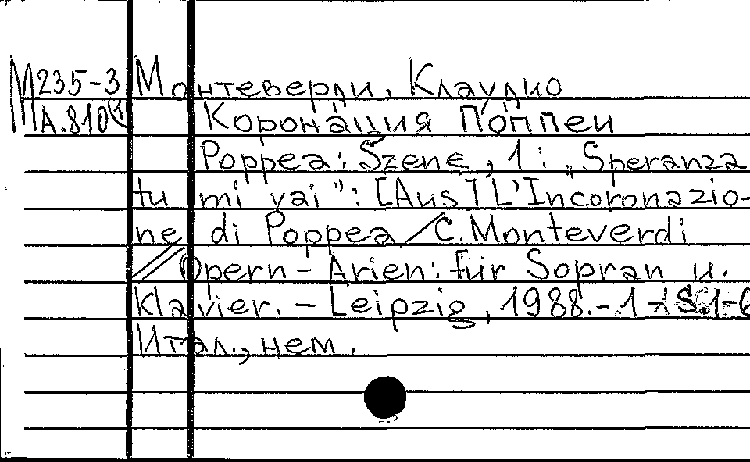 М235-3 Монтеверди, Клаудио
А.810 Коронация Поппеи
Poppea: Szene, 1: „Speranza
tu mi vai": [Aus] L'Incoronazio-
ne di Poppea / C. Monteverdi
// Opern-Arien: für Sopran u.
Klavier. – Leipzig, 1988. – 1 – S.1-6
Итал., нем.